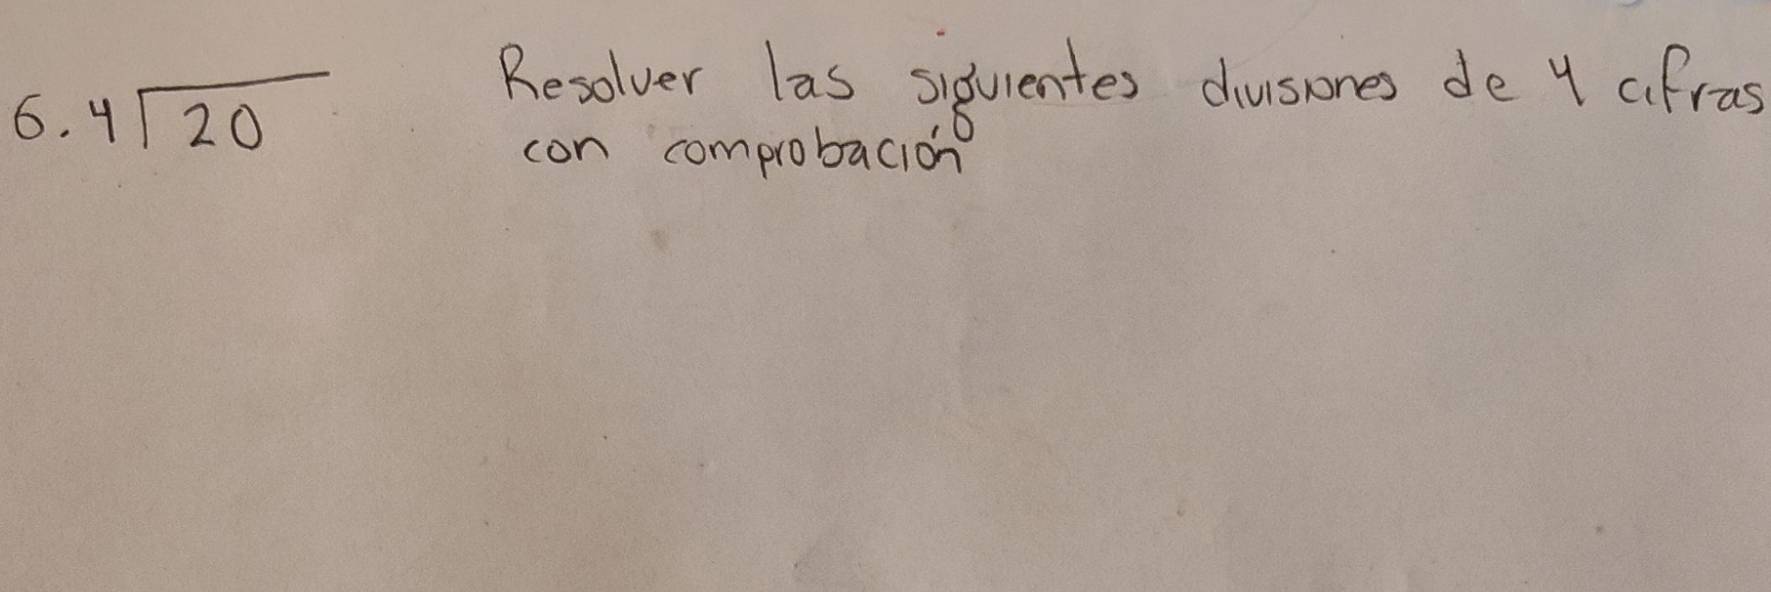 6.4⟌20
Resolver las siguientes divisiones de 4 cifras
con comprobación